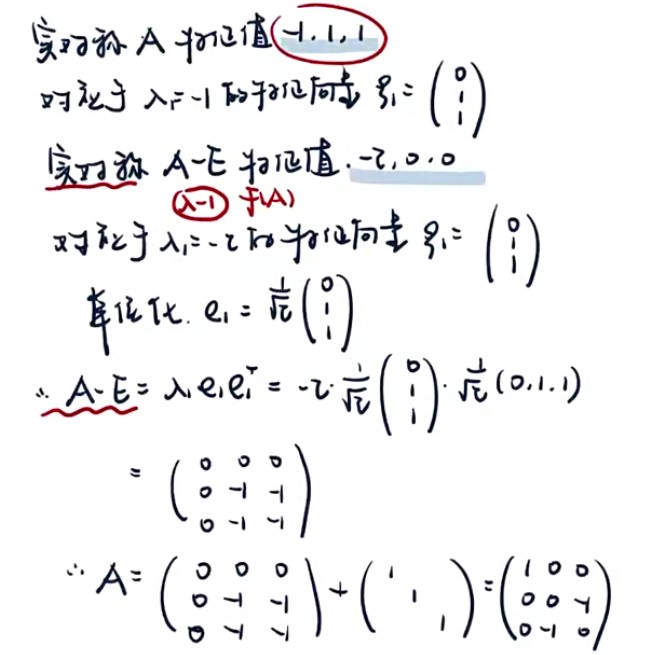 实对称 A 特征值 -1, 1, 1
对应于 λ₁=-1 的特征向量 ξ₁= (0 1 1)
实对称 A-E 特征值. -2, 0, 0
λ-1 f(A)
对应于 λ₁=-2 的特征向量 ξ₁= (0 1 1)
单位化. e₁ = 1/√2 (0 1 1)
∴ A-E = λ₁e₁e₁ᵀ = -2· 1/√2 (0 1 1) · 1/√2 (0,1,1)
= (0 0 0
0 -1 -1
0 -1 -1)
∴ A= (0 0 0 0 -1 -1 0 -1 -1) + (1 1 1) = (1 0 0 0 0 -1 0 -1 0)